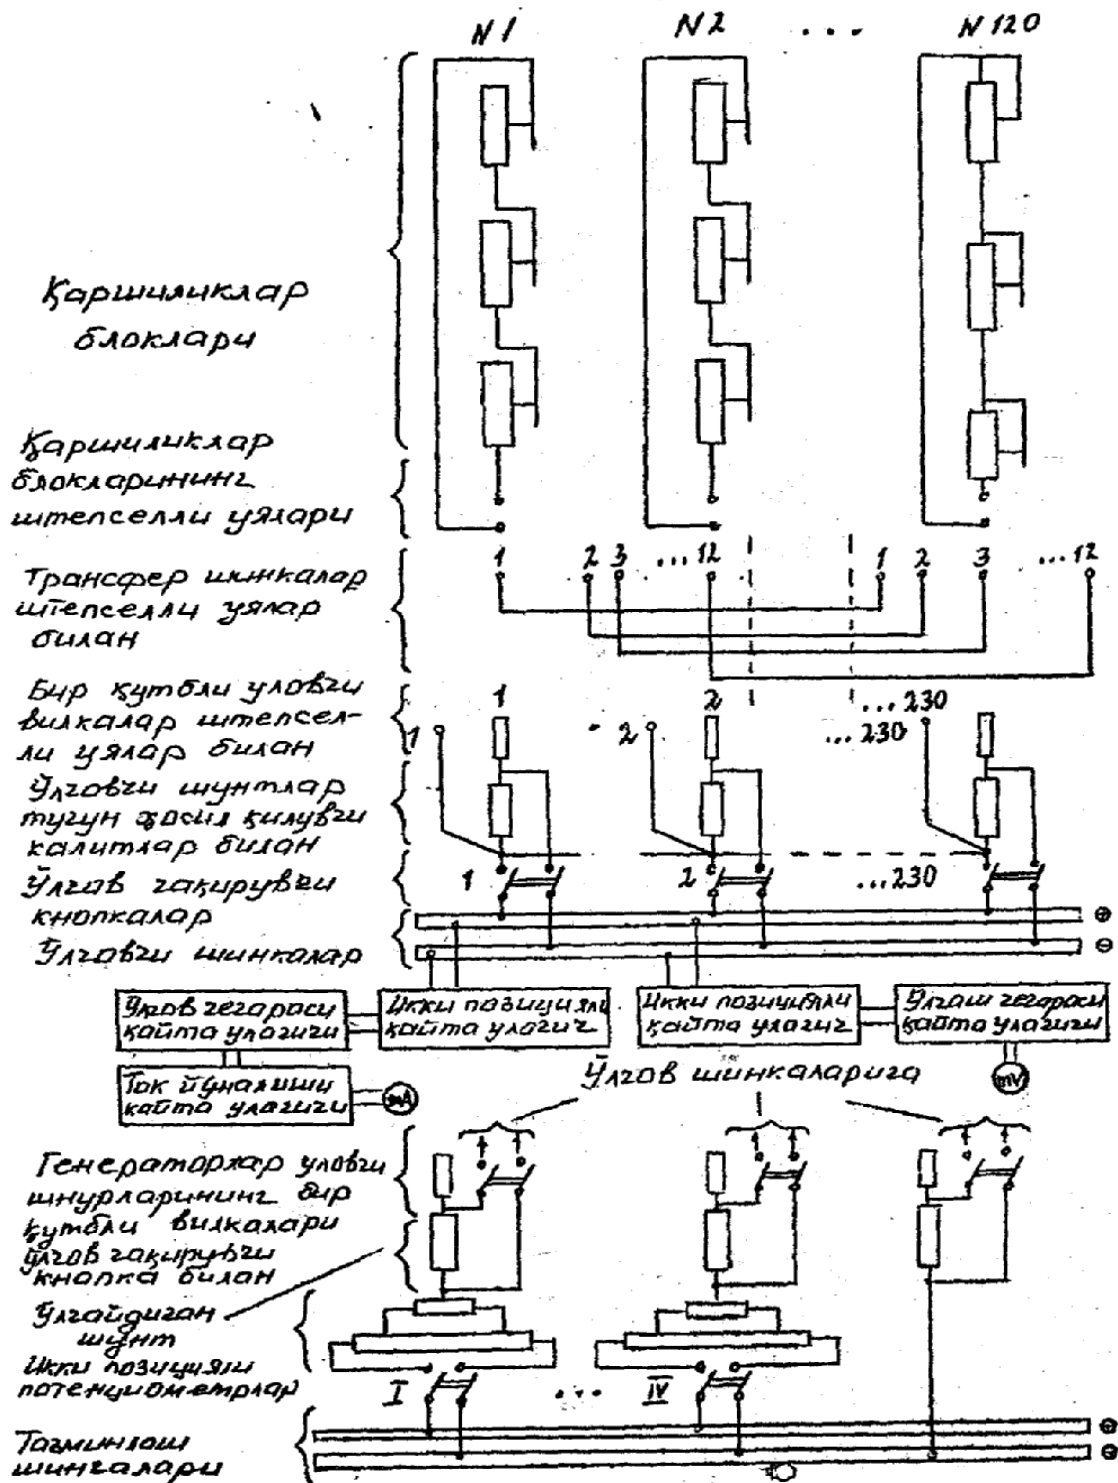 N 1
N 2
...
N 120
Қаршиликлар
блоклари
Қаршиликлар
блокларининг
штепселли уялари
Трансфер шинкалар
штепселли уялар
билан
1
2
3
...12
1
2
3
...12
Бир қутбли уловчи
вилкалар штепсел-
ли уялар билан
1
2
...230
1
2
...230
Ўлчовчи шунтлар
тугун ҳосил қилувчи
калитлар билан
Ўлчов чақирувчи
кнопкалар
1
2
...230
Ўлчовчи шинкалар
⊕
⊖
Ўлчов чегараси
қайта улагичи
Икки позицияли
қайта улагич
Икки позицияли
қайта улагич
Ўлчаш чегараси
қайта улагичи
Ток йўналиши
қайта улагичи
mA
mV
Ўлчов шинкаларига
Генераторлар уловчи
шнурларининг бир
қутбли вилкалари
ўлчов чақирувчи
кнопка билан
Ўлчайдиган
шунт
Икки позицияли
потенциометрлар
I
...
IV
Таъминлаш
шинчалари